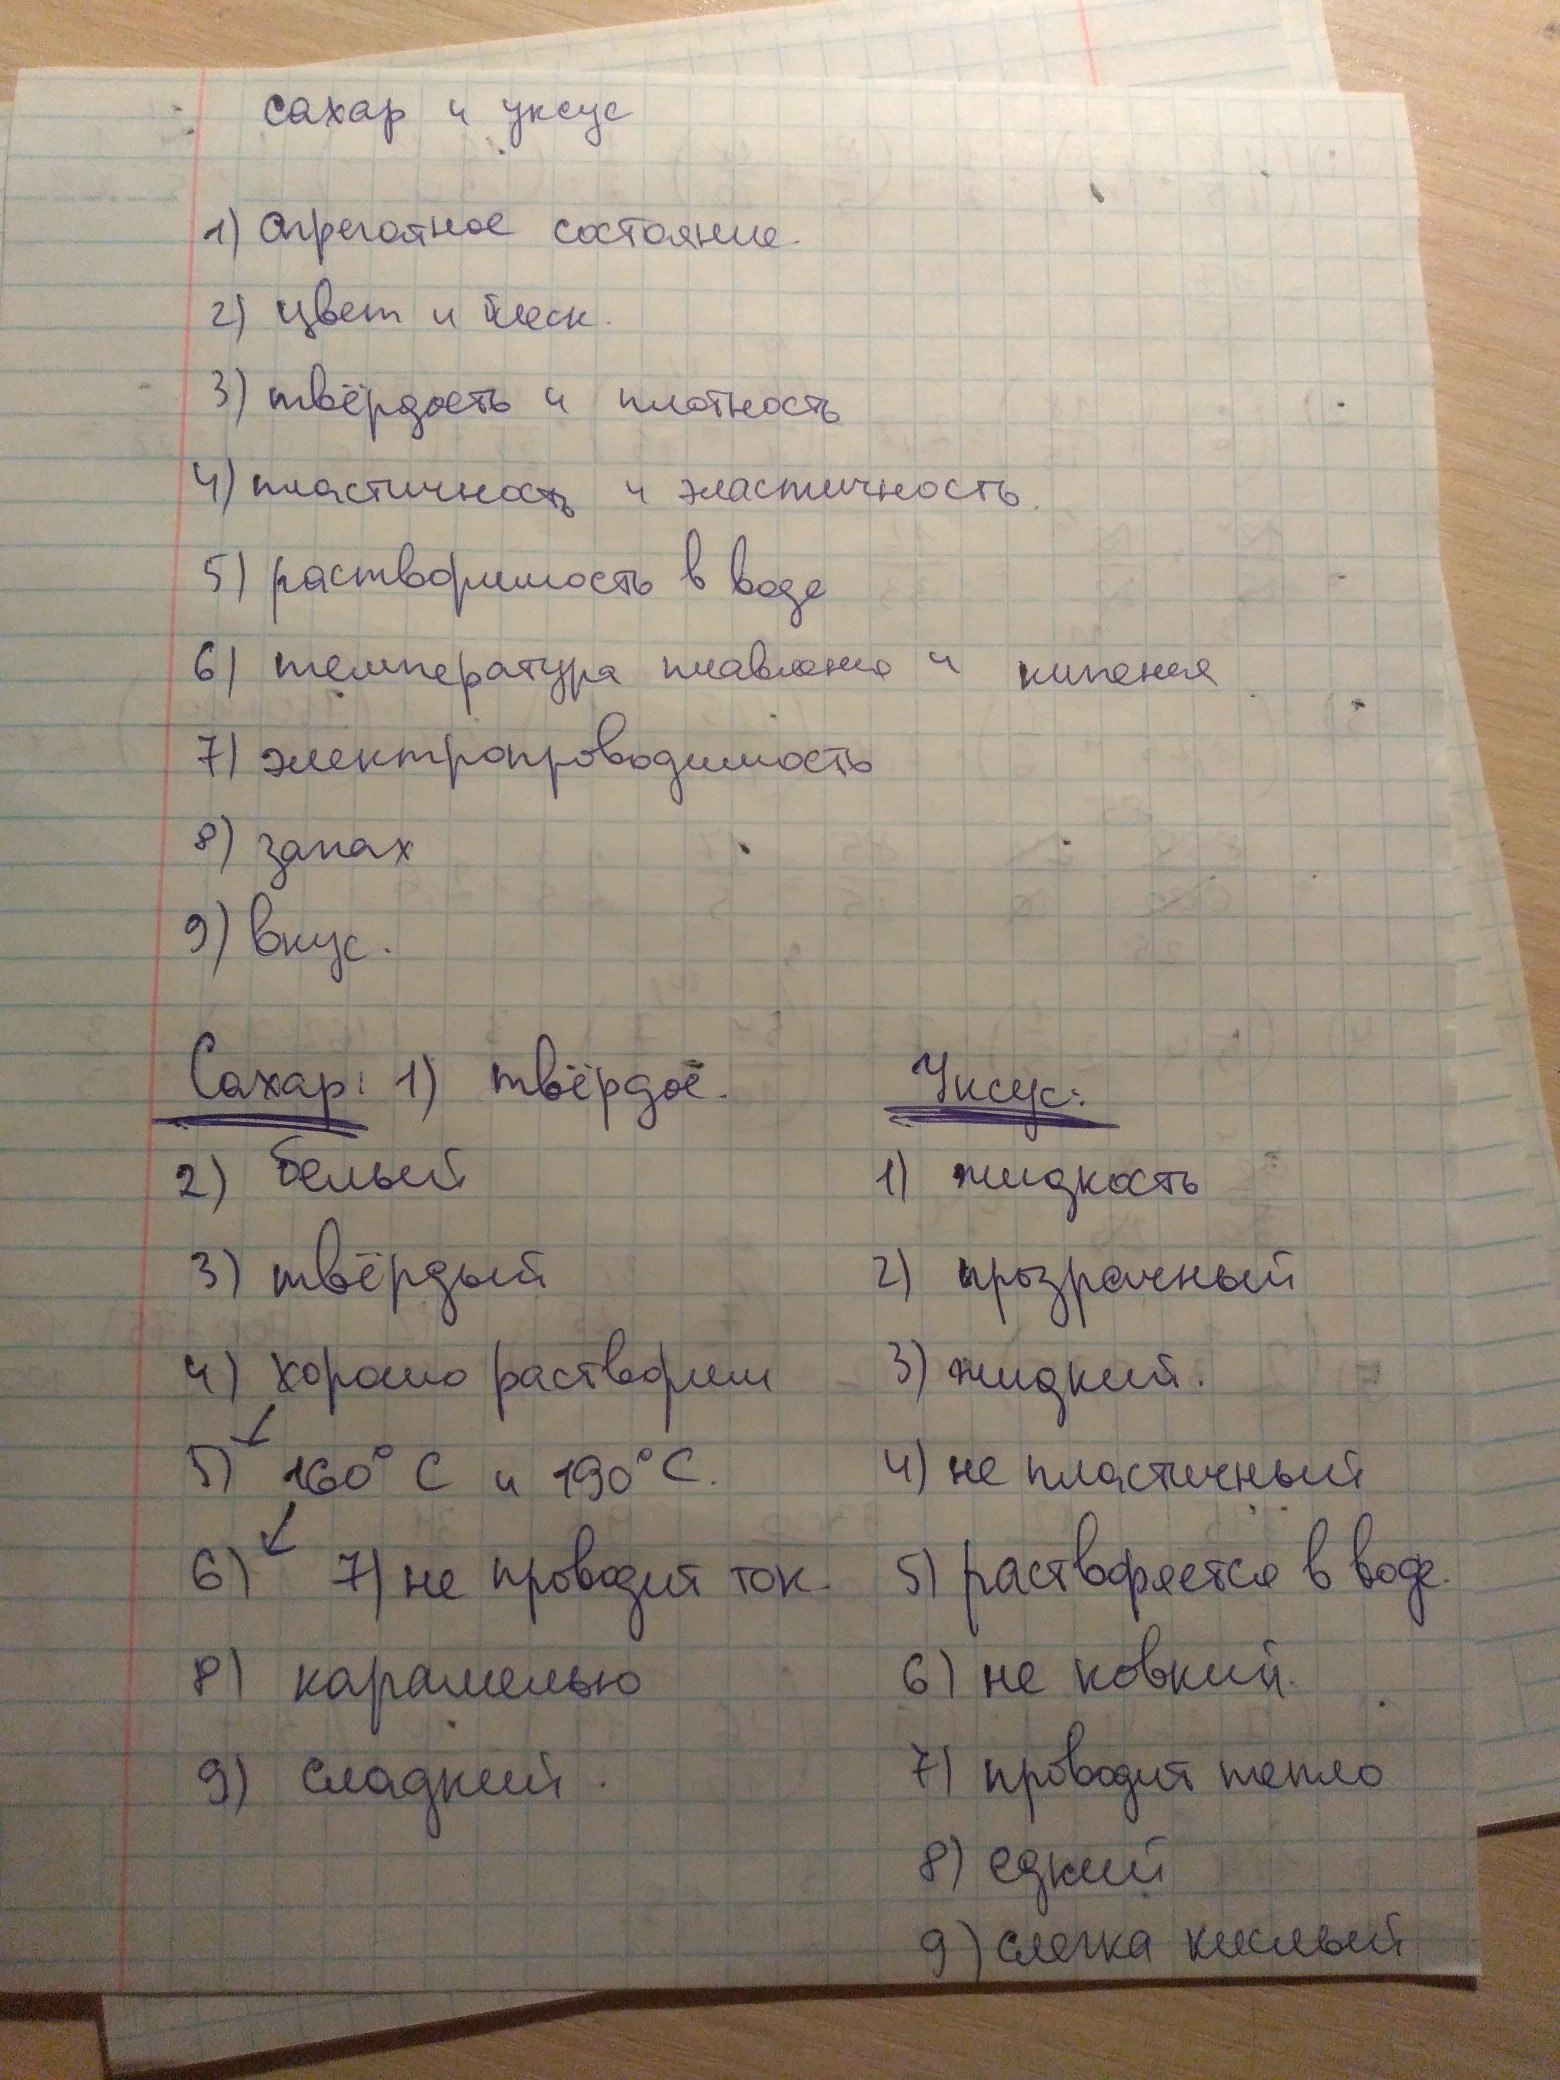 сахар и уксус
1) агрегатное состояние.
2) цвет и блеск.
3) твёрдость и плотность
4) пластичность и эластичность.
5) растворимость в воде
6) температура плавления и кипения
7) электропроводимость
8) запах
9) вкус.
Сахар: 1) твёрдоё.
2) белый
3) твёрдый
4) хорошо растворим
5) 160°C и 190°C.
6) 7) не проводит ток.
8) карамелью
9) сладкий.
Уксус:
1) жидкость
2) прозрачный
3) жидкий.
4) не пластичный
5) растворяется в воде.
6) не ковкий.
7) проводит тепло
8) едкий
9) слегка кислый